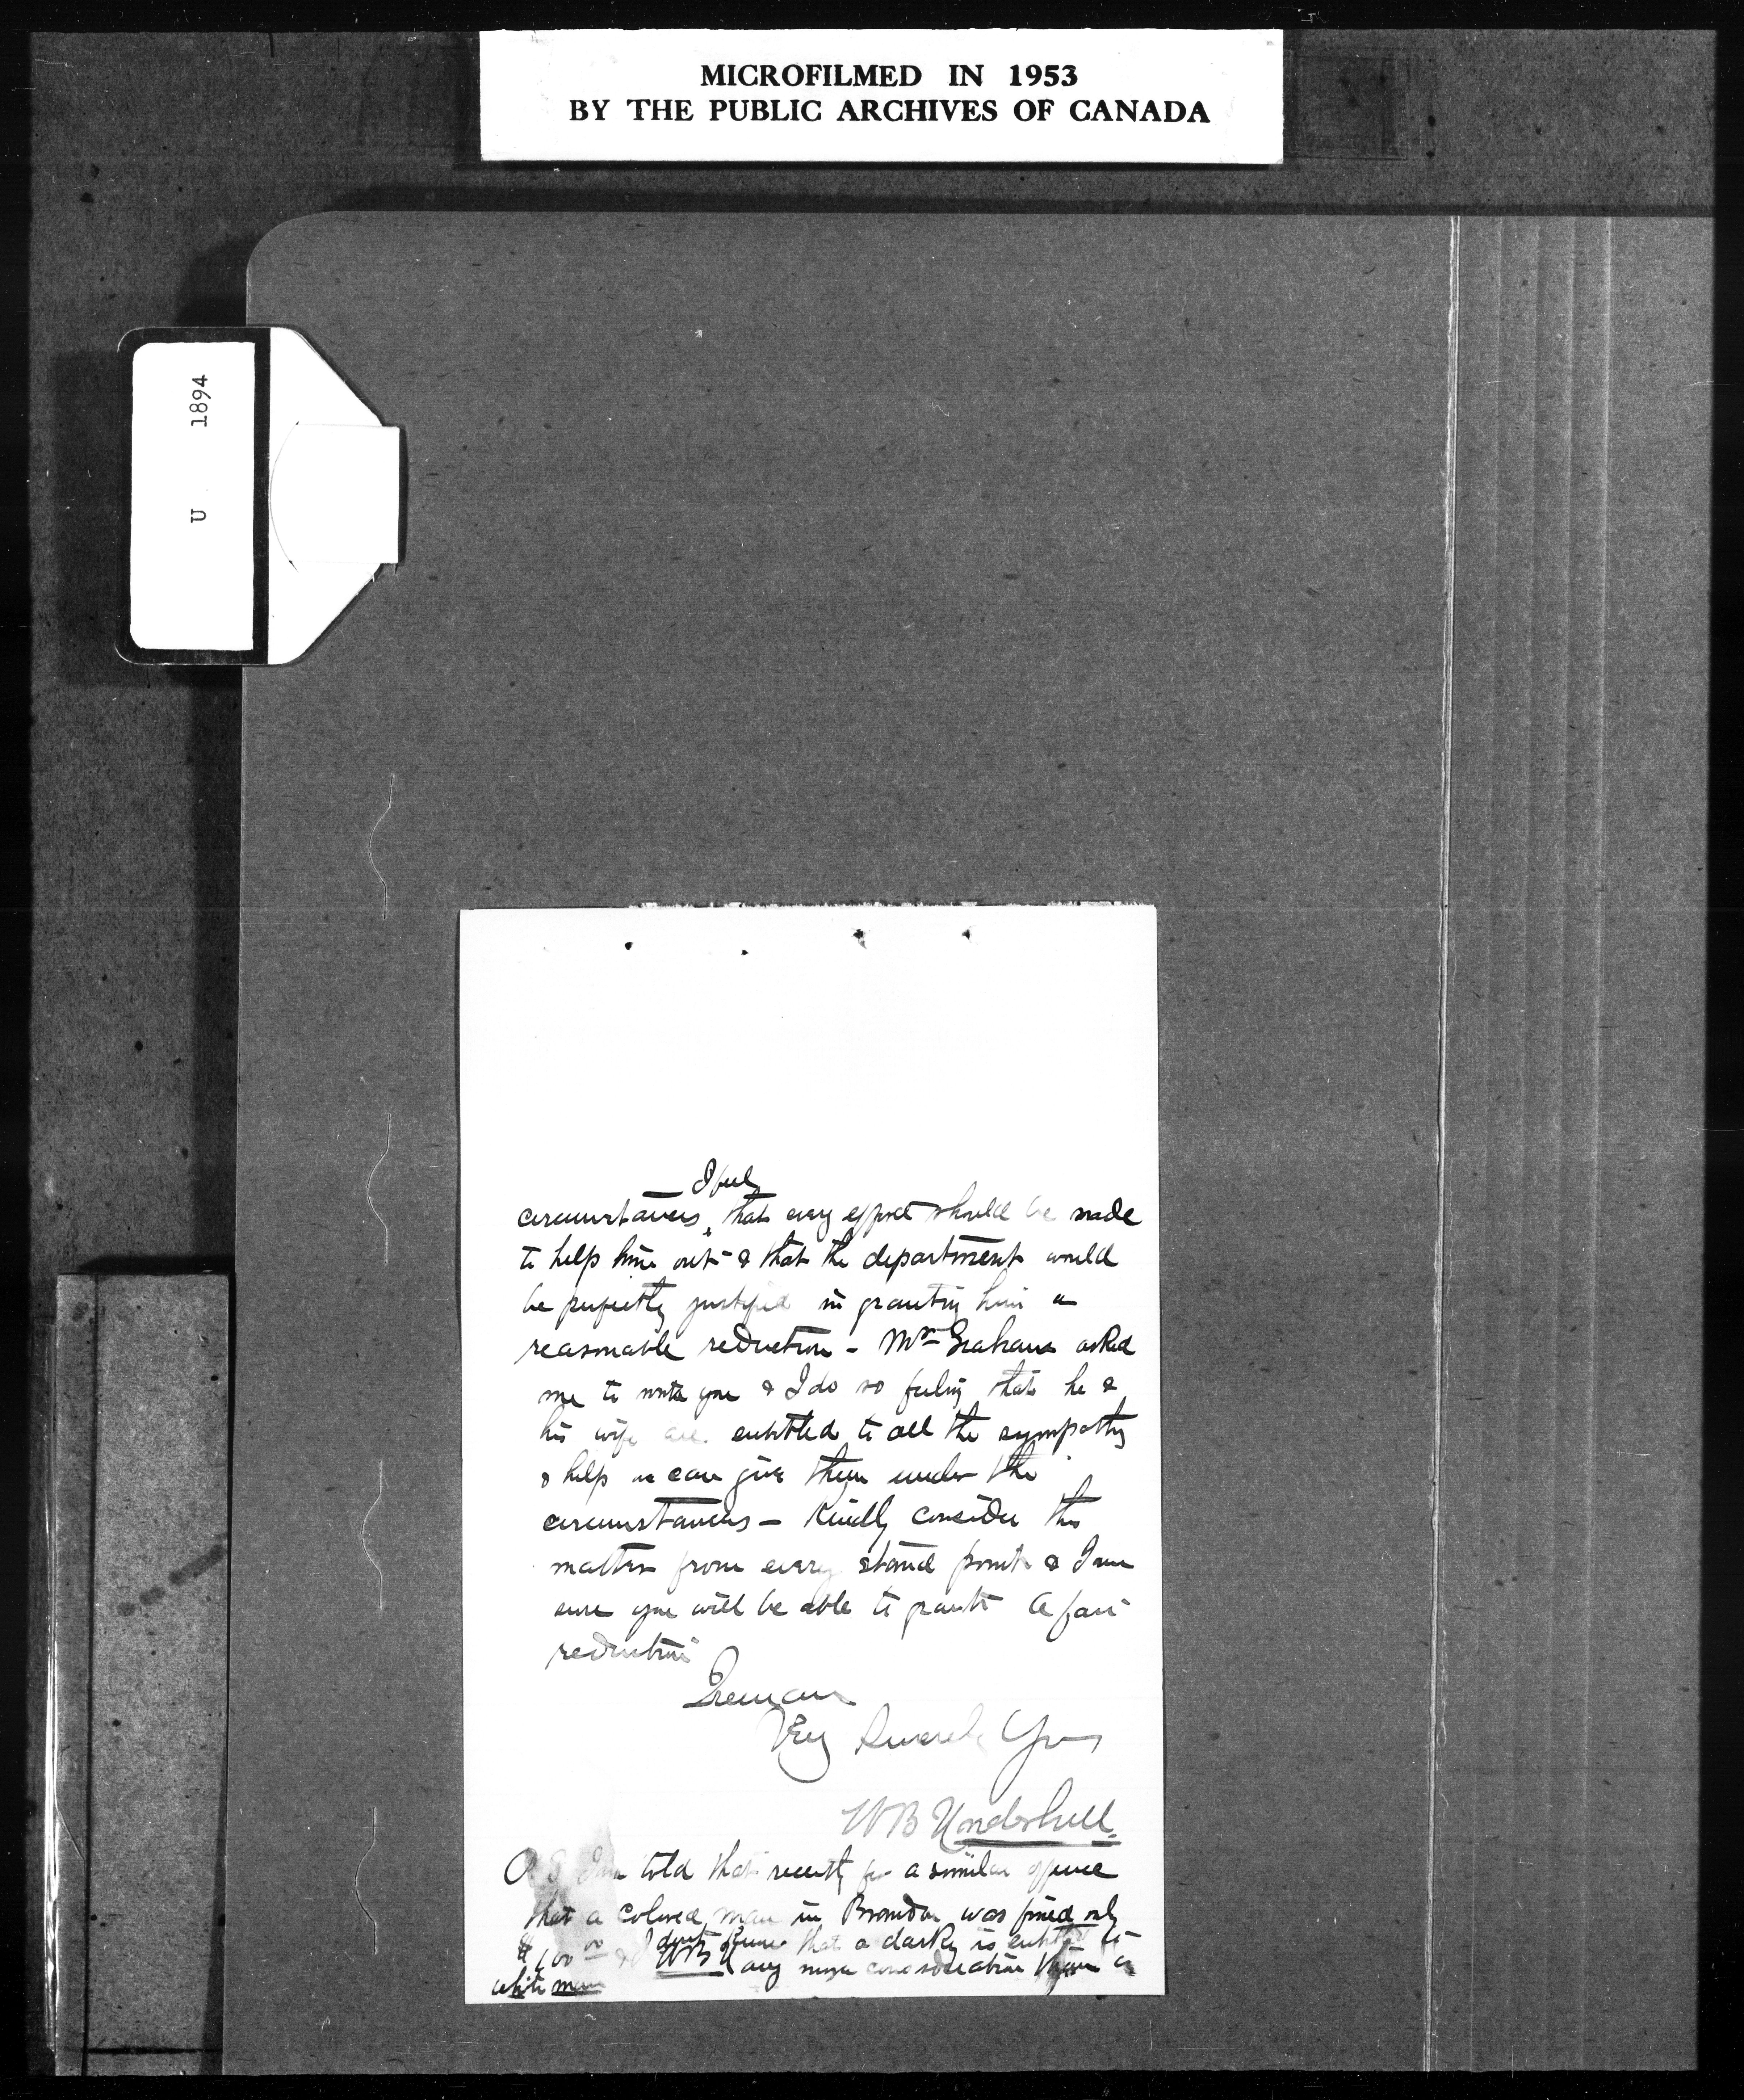 MICROFILMED IN 1953
BY THE PUBLIC ARCHIVES OF CANADA
U 1894
I feel
circumstances, that every effort should be made
to help him out & that the department would
be perfectly justified in granting him a
reasonable reduction - Mr Graham asked
me to write you & I do so feeling that he &
his wife are entitled to all the sympathy
& help we can give them under the
circumstances - Kindly consider this
matter from every stand point & I am
sure you will be able to grant a fair
reduction
I remain
Very Sincerely Yrs
WB Underhill
P.S I am told that recently for a similar offence
that a colored man in Brandon was fined only
$100 00 & I dont know that a darky is entitled to
WB any more consideration than a
white man